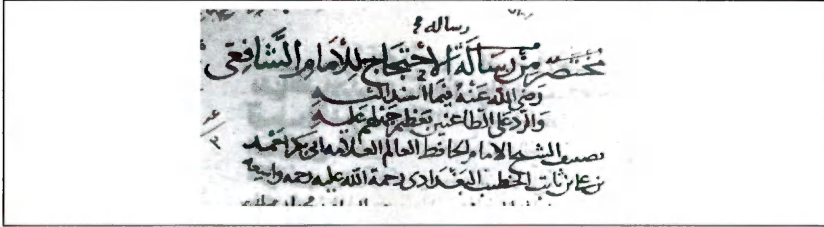 رساله
مختصر من رسالة الاحتجاج للامام الشافعي
رضي الله عنه فيما اسند اليه
والرد على الطاعنين بعظم جهلهم عليه
تصنيف الشيخ الامام الحافظ العالم العلامه ابي بكر احمد
بن علي بن ثابت الخطيب البغدادي رحمة الله عليه رحمه واسعه